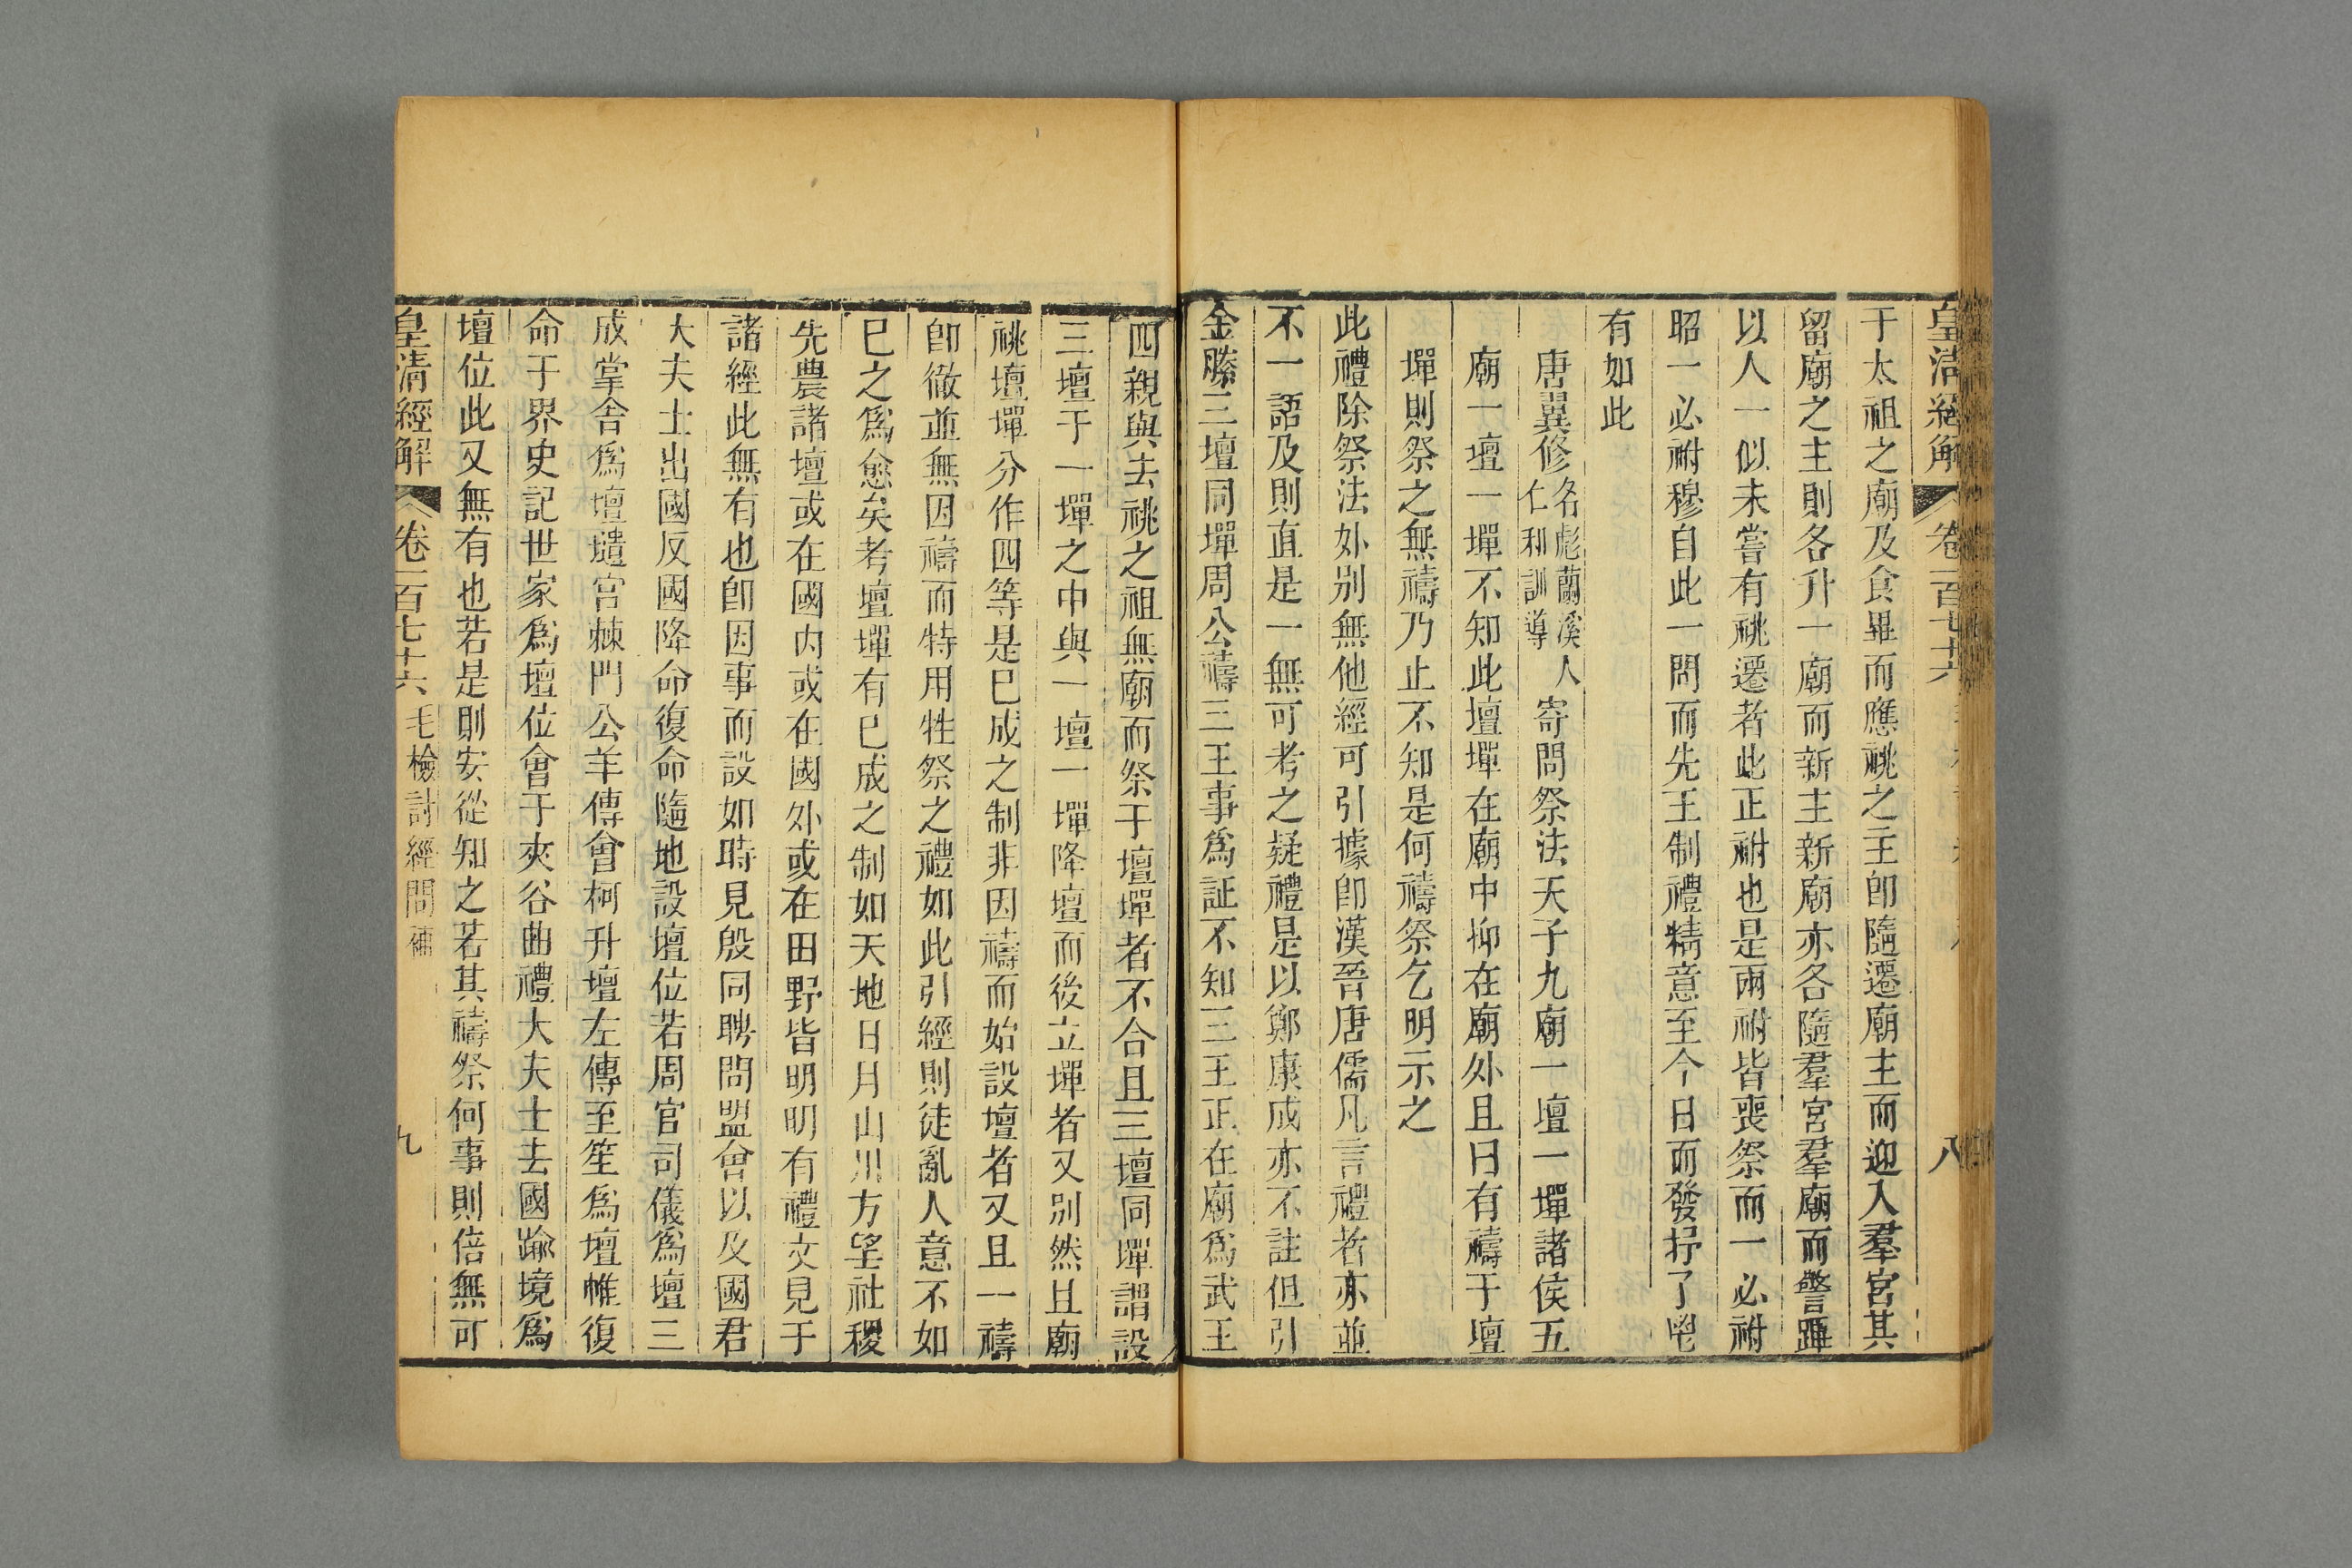 皇清經解
卷一百七十六
八
于太祖之廟及食畢而應祧之主卽隨遷廟主而迎入羣宮其
留廟之主則各升一廟而新主新廟亦各隨羣宮羣廟而警蹕
以人一似未嘗有祧遷者此正祔也是兩祔皆喪祭而一必祔
昭一必祔穆自此一問而先王制禮精意至今日而發抒了鬯
有如此
唐翼修名彪蘭溪人仁和訓導寄問祭法天子九廟一壇一墠諸侯五
廟一壇一墠不知此壇墠在廟中抑在廟外且曰有禱于壇
墠則祭之無禱乃止不知是何禱祭乞明示之
此禮除祭法外别無他經可引據卽漢晉唐儒凡言禮者亦並
不一語及則直是一無可考之疑禮是以鄭康成亦不註但引
金縢三壇同墠周公禱三王事爲証不知三王正在廟爲武王
四親與去祧之祖無廟而祭于壇墠者不合且三壇同墠謂設
三壇于一墠之中與一壇一墠降壇而後立墠者又别然且廟
祧壇墠分作四等是已成之制非因禱而始設壇者又且一禱
卽徹並無因禱而特用牲祭之禮如此引經則徒亂人意不如
已之爲愈矣考壇墠有已成之制如天地日月山川方望社稷
先農諸壇或在國内或在國外或在田野皆明明有禮文見于
諸經此無有也卽因事而設如時見殷同聘問盟會以及國君
大夫士出國反國降命復命隨地設壇位若周官司儀爲壇三
成掌舍爲壇壝宮棘門公羊傳會柯升壇左傳至笙爲壇帷復
命于界史記世家爲壇位會于夾谷曲禮大夫士去國踰境爲
壇位此又無有也若是則安從知之若其禱祭何事則倍無可
皇清經解
卷一百七十六
毛檢討經問補
九